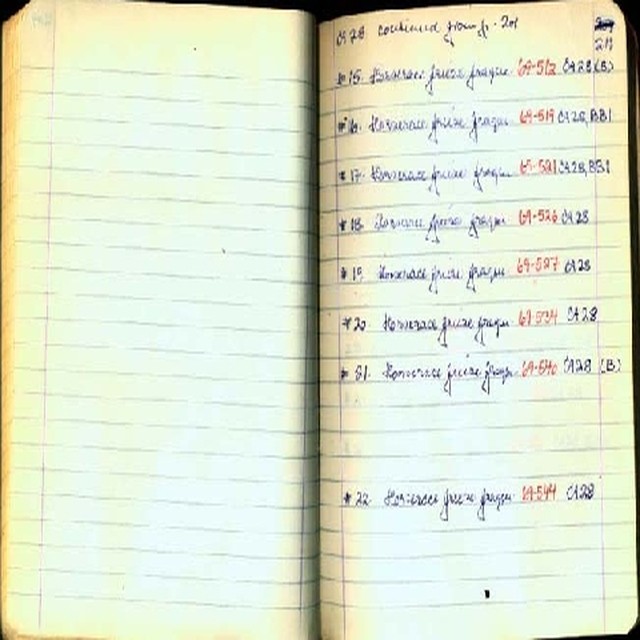 CA 28 continued from p. 201
211
# 15. Horserace frieze fragm. 69-512 CA28 (B)
# 16. Horserace frieze fragm. 69-519 CA28, BB1
# 17. Horserace frieze fragm. 69-521 CA28, BB1
# 18. Horserace frieze fragm. 69-526 CA28
# 19. Horserace frieze fragm. 69-527 CA28
# 20. Horserace frieze fragm. 69-534 CA28
# 21. Horserace frieze fragm. 69-540 CA28 (B)
# 22. Horserace frieze fragm. 69-544 CA28